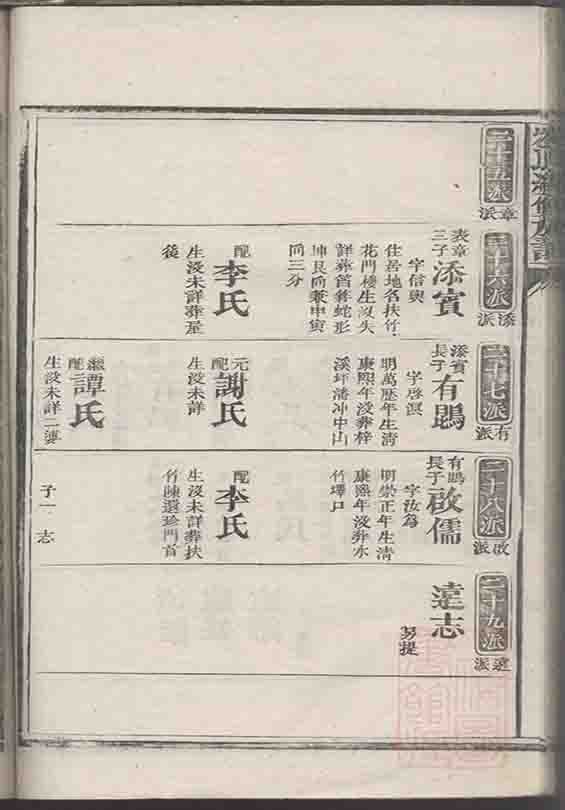 二十五派
章派
二十六派
添派
表章
三子
添賓
字信與
住居地名扶竹
花門樓生沒失
詳葬笛脊蛇形
坤艮向兼申寅
向三分
配
李氏
生沒未詳葬屋
後
二十七派
有派
添賓
長子
有鵾
字啓溟
明萬歷年生清
康熙年沒葬梓
溪坪潘沖中山
元配
謝氏
生沒未詳
繼配
譚氏
生沒未詳二婆
二十八派
啟派
有鵾
長子
啟儒
字汝為
明崇正年生清
康熙年沒葬水
竹墿口
配
李氏
生沒未詳葬扶
竹陳還珍門首
子一 志
二十九派
遠派
遠志
另提